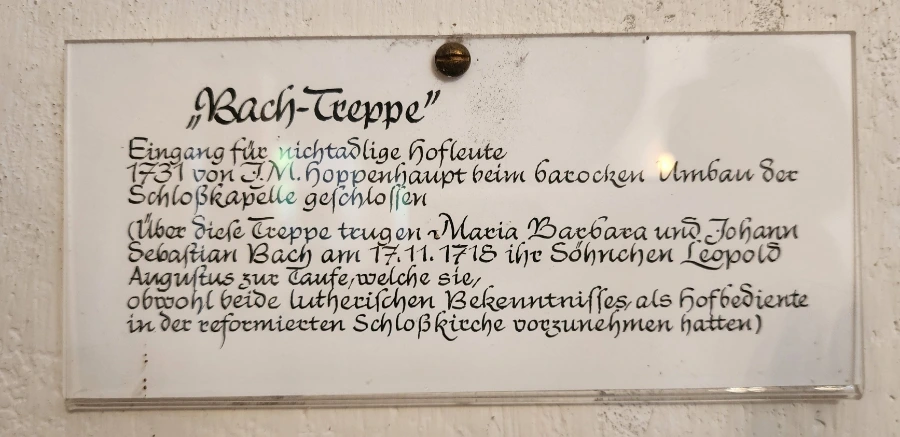 „Bach-Treppe”
Eingang für nichtadlige Hofleute
1731 von J.M. Hoppenhaupt beim barocken Umbau der
Schloßkapelle geſchloſſen
(Über dieſe Treppe trugen Maria Barbara und Johann
Sebaſtian Bach am 17.11.1718 ihr Söhnchen Leopold
Auguſtus zur Taufe, welche sie,
obwohl beide lutheriſchen Bekenntniſſes, als Hofbediente
in der reformierten Schloßkirche vorzunehmen hatten)